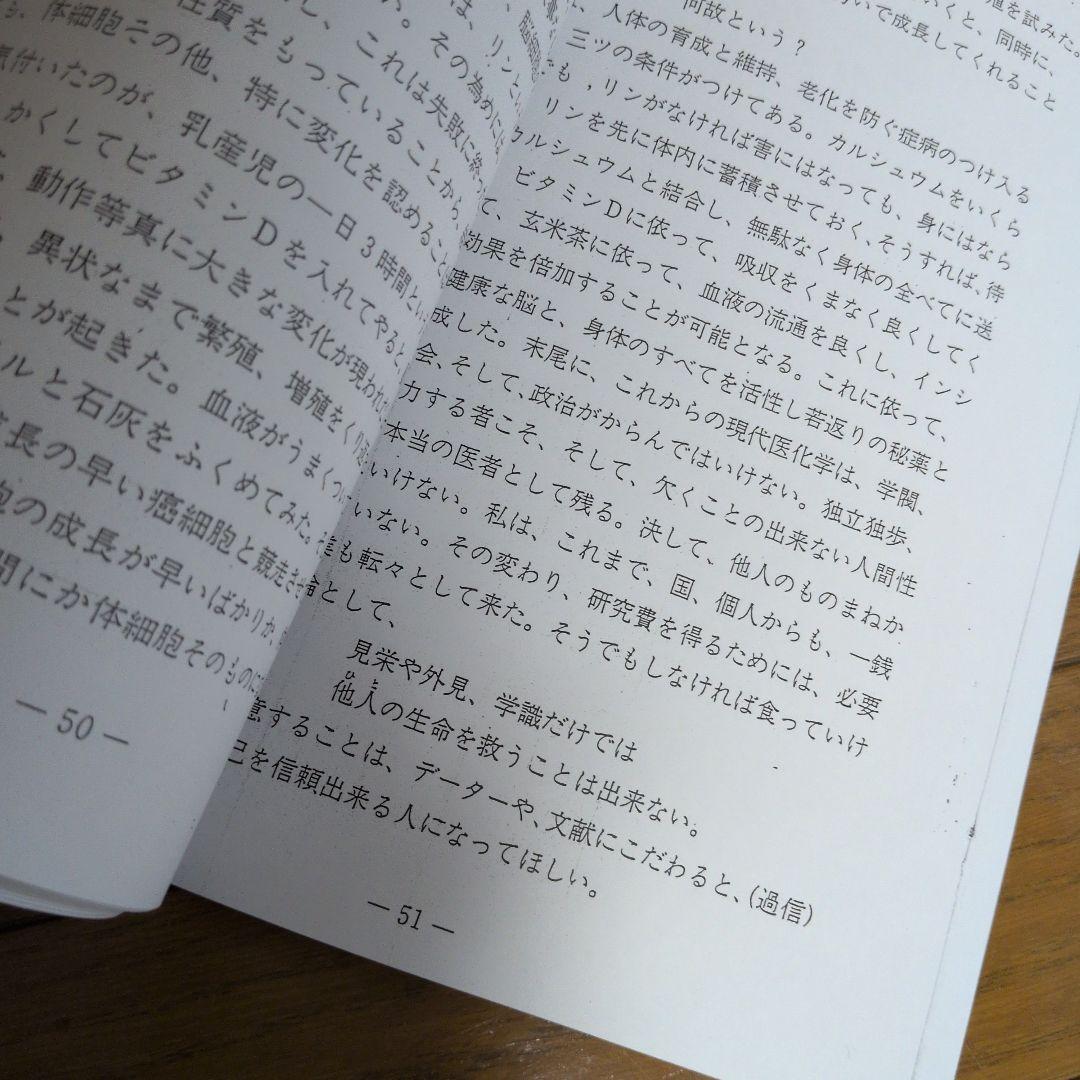 体細胞その他、特に変化を認めること
付いたのが、乳産児の一日3時間とい
かくしてビタミンDを入れてやると、
動作等真に大きな変化が現われ
異状なまで繁殖、増殖をくり
とが起きた。血液がうまく
ルと石灰をふくめてみた。
長の早い癌細胞と競走さ
胞の成長が早いばかりか、
間にか体細胞そのものに
— 50 —
殖を試みた。
いくと、同時に、
いで成長してくれること
何故という?
人体の育成と維持、老化を防ぐ症病のつけ入る
三ツの条件がつけてある。カルシュウムをいくら
も、リンがなければ害にはなっても、身にはなら
リンを先に体内に蓄積させておく、そうすれば、待
ルシュウムと結合し、無駄なく身体の全べてに送
ビタミンDに依って、吸収をくまなく良くしてく
て、玄米茶に依って、血液の流通を良くし、インシ
効果を倍加することが可能となる。これに依って、
健康な脳と、身体のすべてを活性し若返りの秘薬と
成した。末尾に、これからの現代医化学は、学閥、
会、そして、政治がからんではいけない。独立独歩、
力する者こそ、そして、欠くことの出来ない人間性
本当の医者として残る。決して、他人のものまねか
いけない。私は、これまで、国、個人からも、一銭
いない。その変わり、研究費を得るためには、必要
も転々として来た。そうでもしなければ食っていけ
として、
見栄や外見、学識だけでは
他人の生命を救うことは出来ない。
意することは、データーや、文献にこだわると、(過信)
己を信頼出来る人になってほしい。
— 51 —